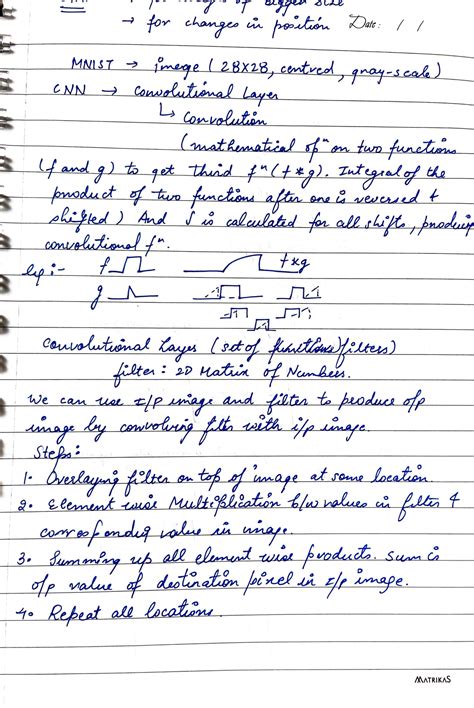 → for changes in position Date: / /
MNIST → image (28X28, centred, gray-scale)
CNN → Convolutional Layer
↳ Convolution
(mathematical opⁿ on two functions
(f and g) to get third fⁿ (f * g). Integral of the
product of two functions after one is reversed &
shifted) And ∫ is calculated for all shifts, producing
convolutional fⁿ.
eg:- f f*g
g
Convolutional Layer (set of functions filters)
filter : 2D Matrix of Numbers.
We can use I/P image and filter to produce o/p
image by convolving filter with i/p image.
Steps:
1. Overlaying filter on top of image at some location.
2. Element wise Multiplication b/w values in filter &
corresponding value in image.
3. Summing up all element wise products. Sum is
o/p value of destination pixel in I/p image.
4. Repeat all locations.
MATRIKAS